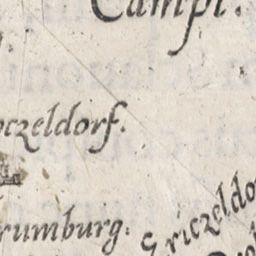 Campt.
oczeldorf.
rumburg.
Griczeldo